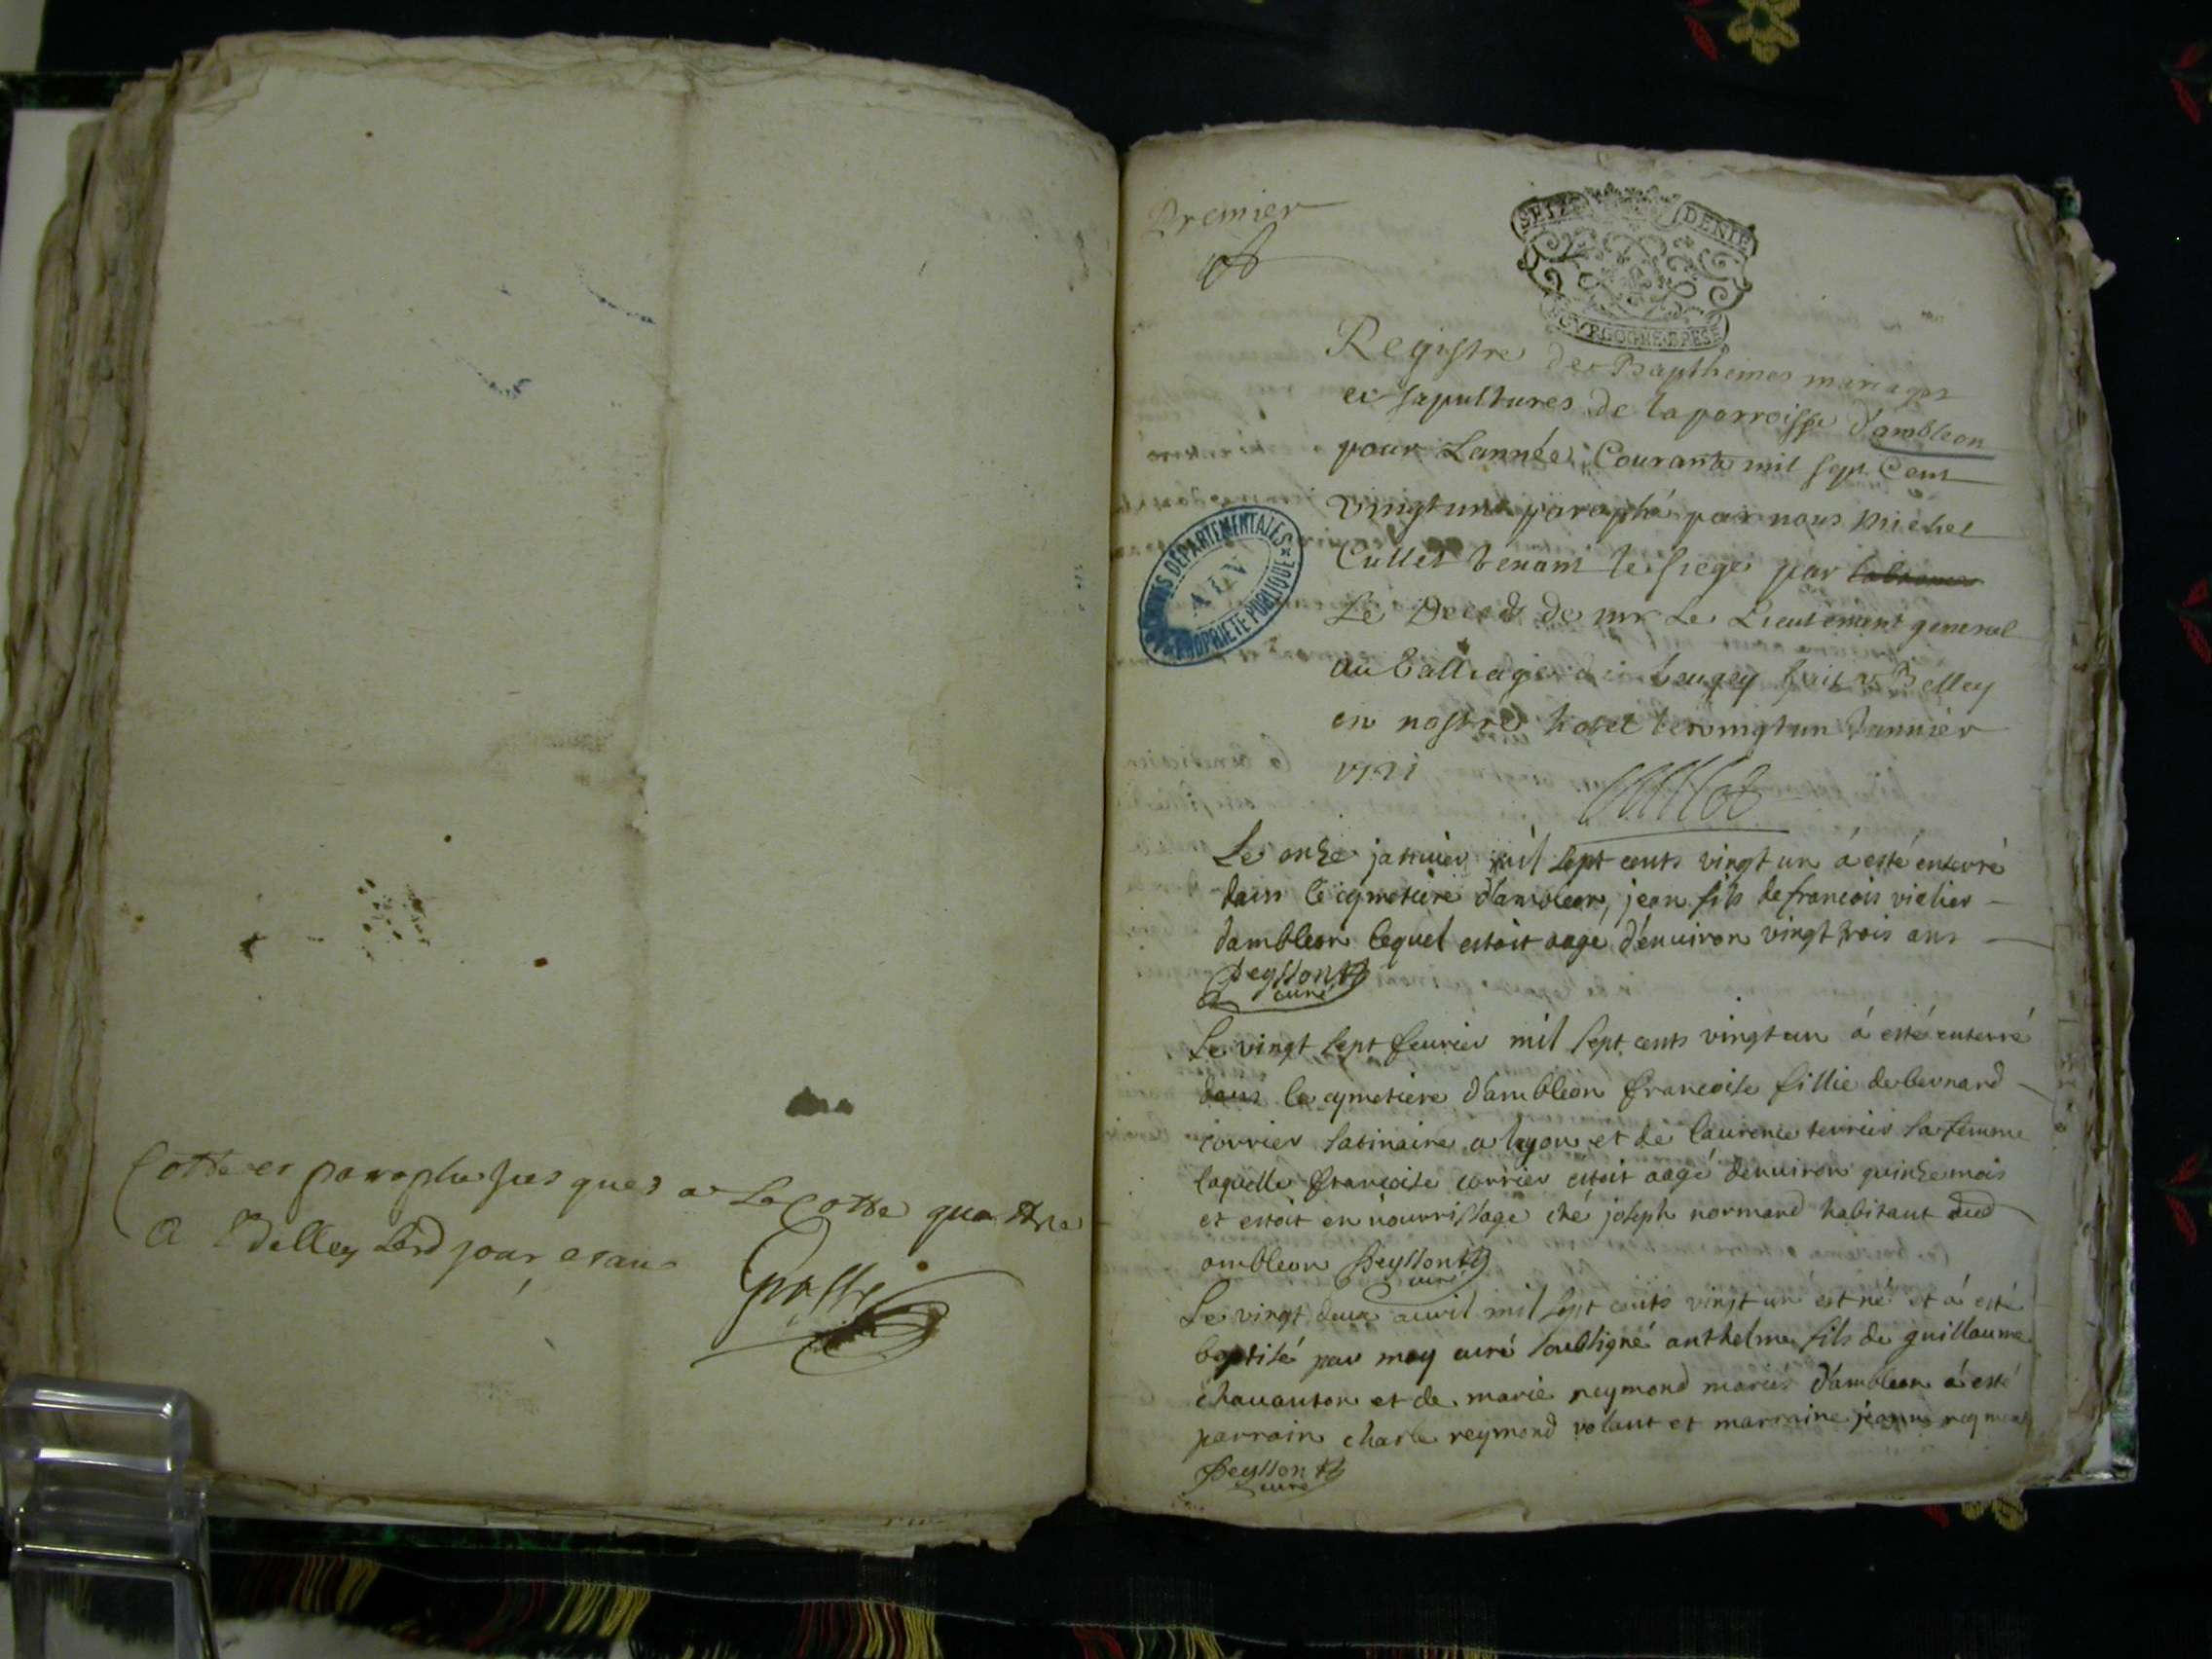 Cotte et paraphe jusques a La Cotte quattre
A Belley Led jour et an
Premier
SEIZE DENIE
BOVRGOGNE BRESE
Registre des Bapthemes mariages
et sapultures de la parroisse d'ambleon
pour Lannée Courante mil sept Cent
vingt un paraphé par nous Michel
Cullet tenant le siege par
Le Deceds de mr Le Lieutenant general
au balliage de beugey fait a Belley
en nostre hotel le vingt un Jannier
1721
Cullet
ARCHIVES DÉPARTEMENTALES
AIN
PROPRIETE PUBLIQUE
Le onze januier mil sept cents vingt un á esté enterré
dans le cymetiere d'ambleon, jean fils de francois vielier
dambleon lequel estoit aagé d'enuiron vingt trois ans
Peysson
curé
Le vingt sept feurier mil sept cents vingt un á esté enterré
dans le cymetiere d'ambleon francoise fillie de bernard
corrier satinaire a lyon et de laurence terrier sa femme
laquelle francoise corrier estoit aagé denuiron quinze mois
et estoit en nourrissage ché joseph normand habitant dud
ambleon Peysson
curé
Le vingt deux auril mil sept cents vingt un est né et á esté
baptisé par moy curé soubsigné anthelme fils de guillaume
chauanton et de marie reymond mariés d'ambleon á esté
parrain charle reymond volant et marraine jeanne reymond
Peysson
curé